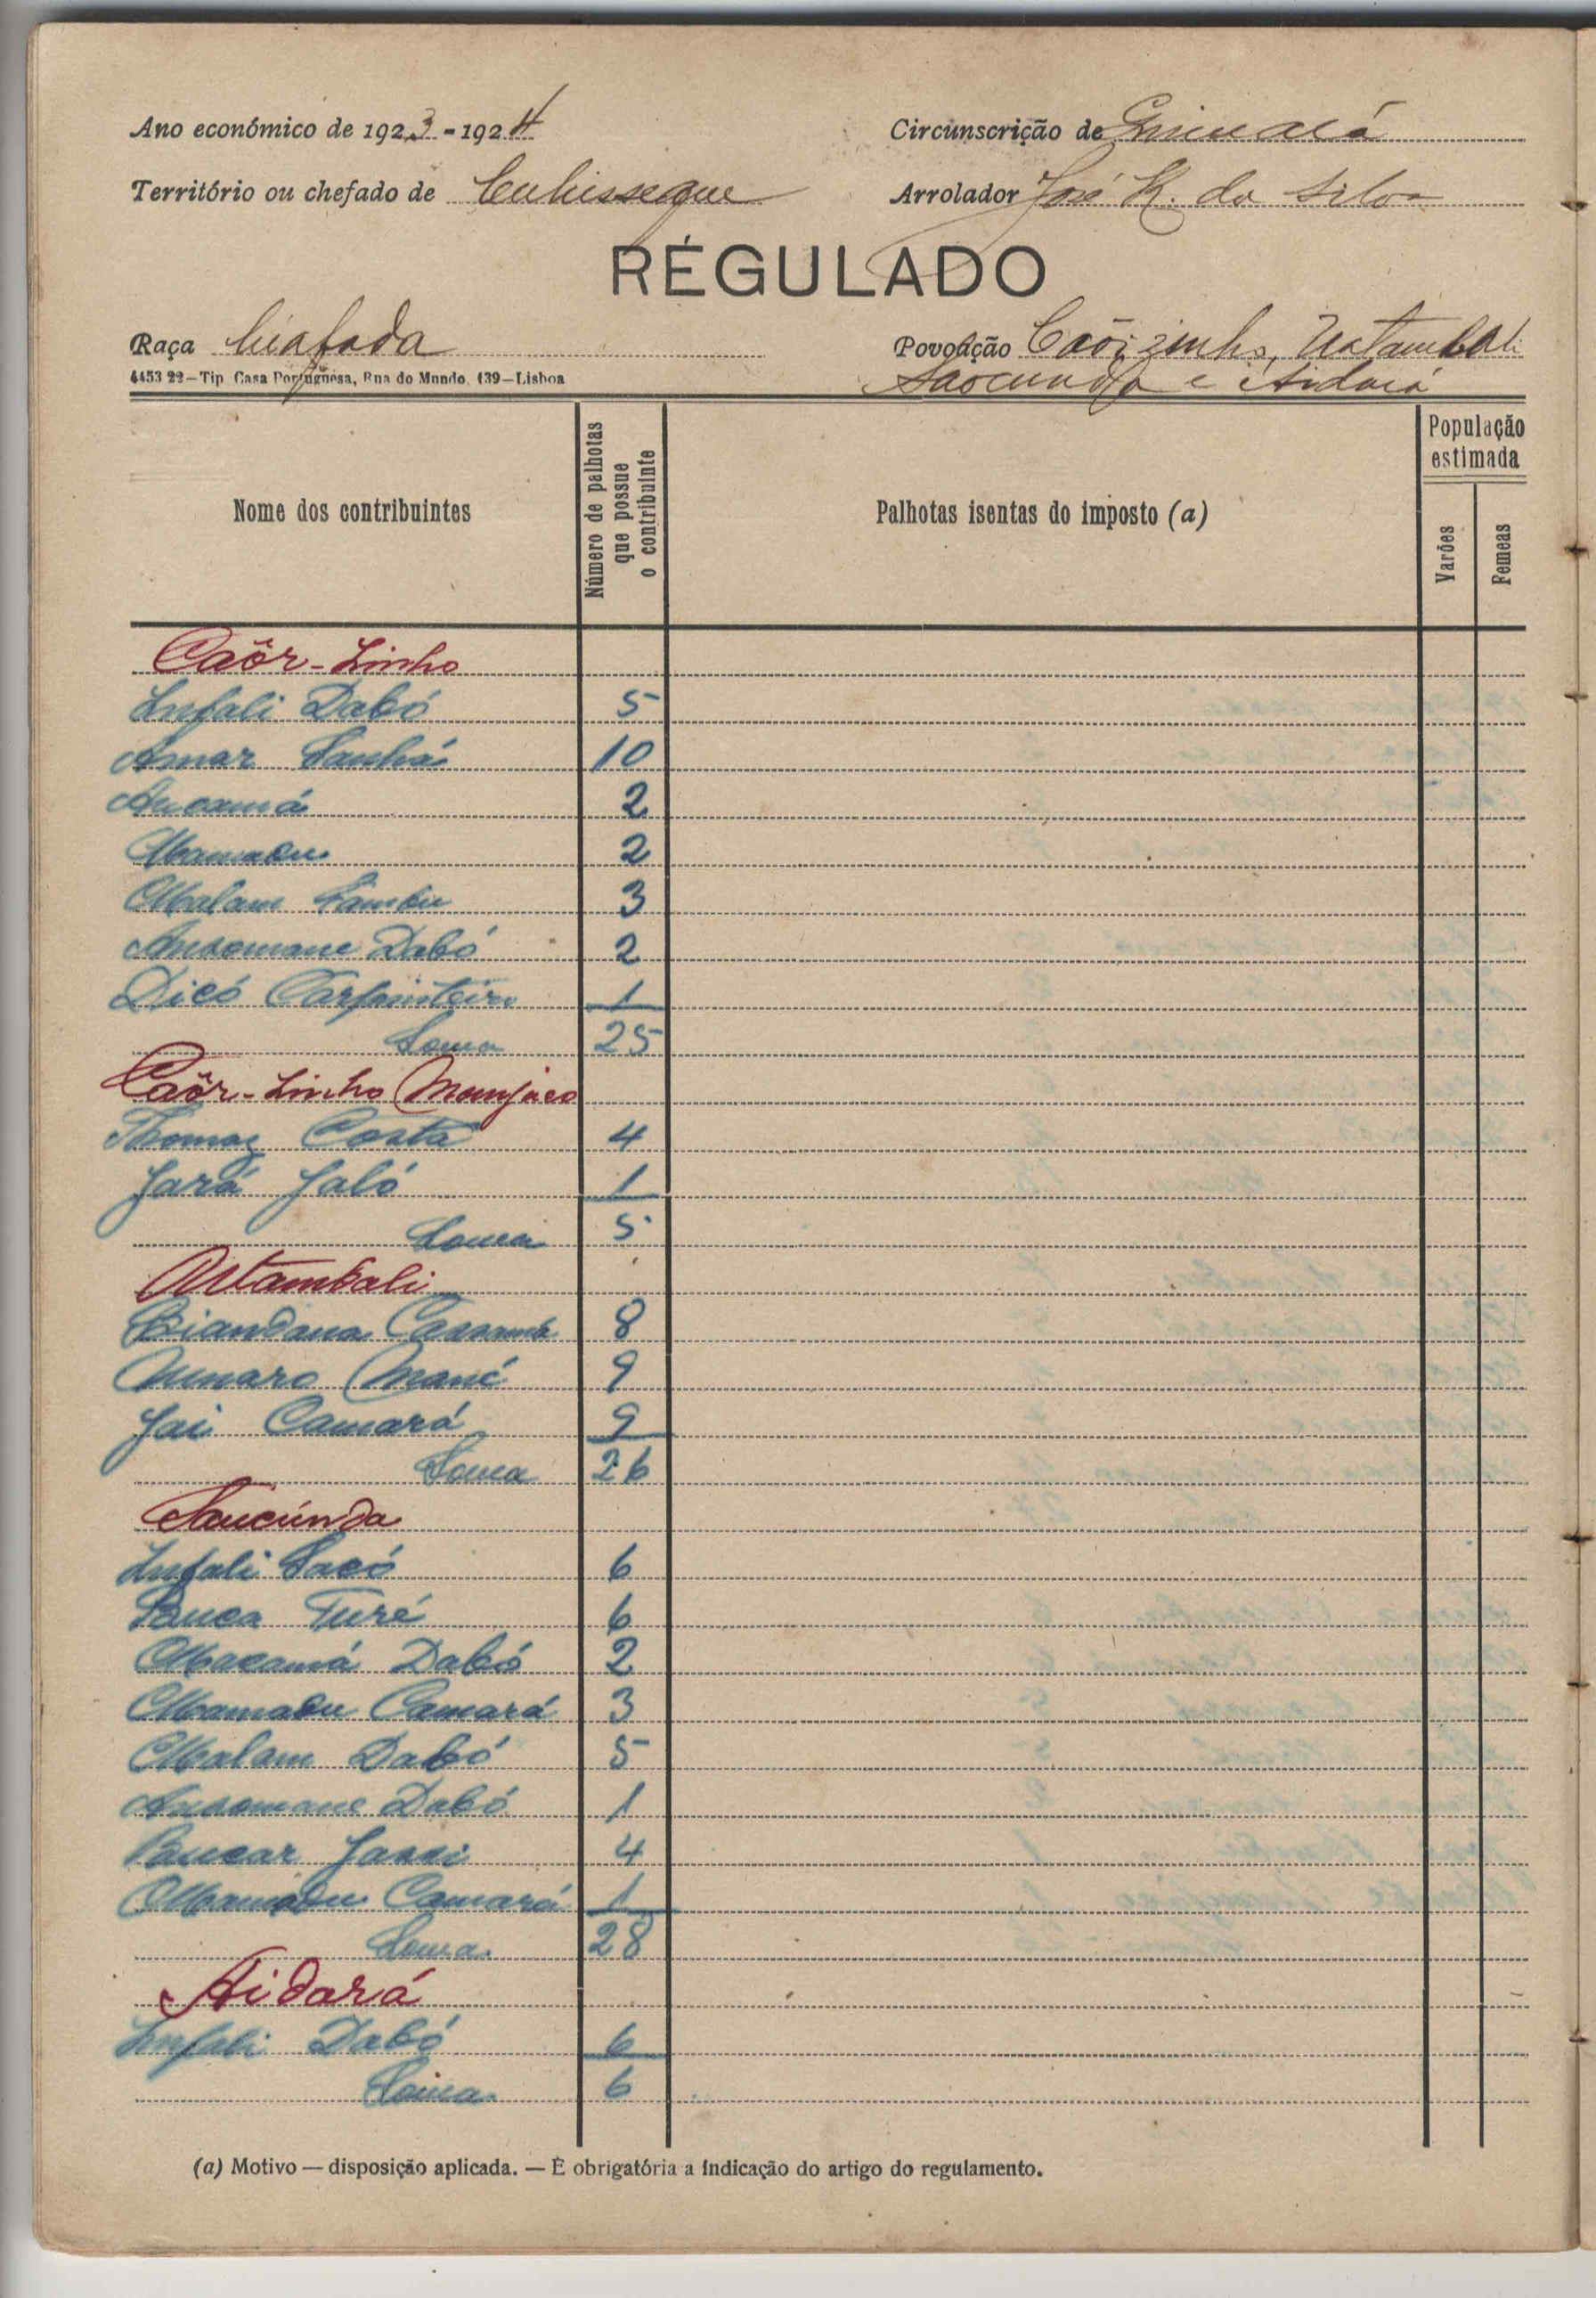 Ano económico de 1923-1924
Circunscrição de
Território ou chefado de Cubisseque
Arrolador José R. da Silva
RÉGULADO
Raça biafada
Povoação Caôrzinho, Untambali
4453 22—Tip. Casa Portuguesa, Rua do Mundo, 139—Lisboa
Saocunda e Aidará
Nome dos contribuintes
Número de palhotas que possue o contribuinte
Palhotas isentas do imposto (a)
População estimada
Varões
Femeas
Caôr-Zinho
Infali Dabó 5
Amar Sanhá 10
2
Mamadu 2
Malam Sambu 3
Ansomane Dabó 2
Dicó Carpinteiro 1
Soma 25
Caôr-Zinho Manjaco
Thomaz Costa 4
Jará Jaló 1
Soma 5
Untambali
Biandana Cassamá 8
Umaro Mané 9
Jai Camará 9
Soma 26
Saucúnda
Infali Sacó 6
Turé 6
Macamá Dabó 2
Mamadu Camará 3
Malam Dabó 5
Ansomane Dabó 1
Bucar Jassi 4
Mamadu Camará 1
Soma 28
Aidará
Infali Dabó 6
Soma 6
(a) Motivo — disposição aplicada. — É obrigatória a indicação do artigo do regulamento.